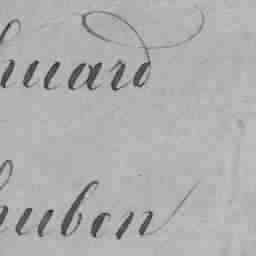 huard
huben